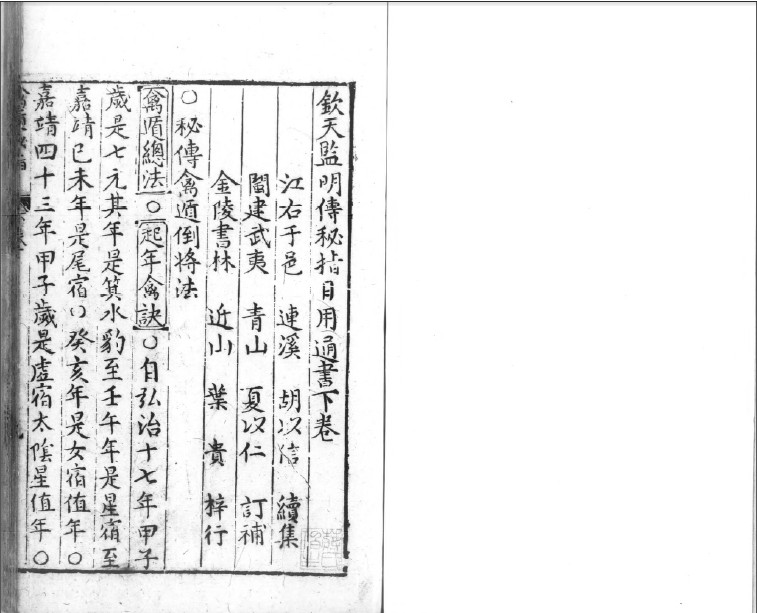 欽天監明傳秘指日用通書下卷
江右于邑 連溪 胡以信 續集
閩建武夷 青山 夏以仁 訂補
金陵書林 近山 葉貴 梓行
○秘傳禽遁倒將法
禽遁總法○起年禽訣○自弘治十七年甲子
歲是七元其年是箕水豹至壬午年是星宿至
嘉靖己未年是尾宿○癸亥年是女宿值年○
嘉靖四十三年甲子歲是虛宿太陰星值年○